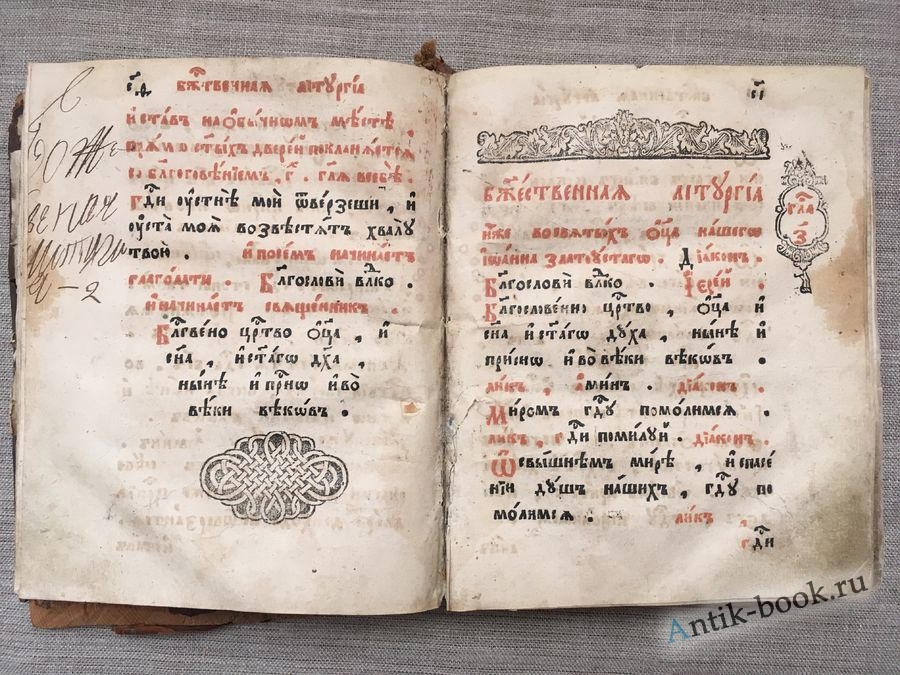 бж҃твенная літургіа
и ставъ на обычномъ мѣстѣ
прямо ст҃ыхъ дверей покланяется
со благоговѣніемъ, г҃. гл҃я в себѣ.
Гд҇и ѹстнѣ мои ѿверзеши, и
ѹста моя возвѣстятъ хвалу
твою . и посемъ начинаетъ
глаголати . Благослови влд҇ко .
и начинаетъ священникъ .
Блг҇вено црт҇во оц҃а , и
сн҃а , и ст҃аго дх҃а ,
нынѣ и прн҇ѡ и во
вѣки вѣковъ .
Бжест҇венная літургіа
иже во святыхъ оц҃а нашегѡ
іѡанна златоустагѡ . Діаконъ .
Благослови влд҇ко . Іерей .
Благословенно црт҇во , оц҃а и
сн҃а , и ст҃агѡ дꙋха , нынѣ и
приснѡ и во вѣки вѣкѡвъ .
ликъ , аминь . діаконъ .
Миромъ гдꙋ҇ помолимся .
ликъ , гд҇и помилуй . діаконъ .
Ѿ вышнѣмъ мирѣ , и спасе
нии дꙋшъ нашихъ , гдꙋ҇ по
молимся . ликъ ,
гд҇и
гла
з҃
Antik-book.ru